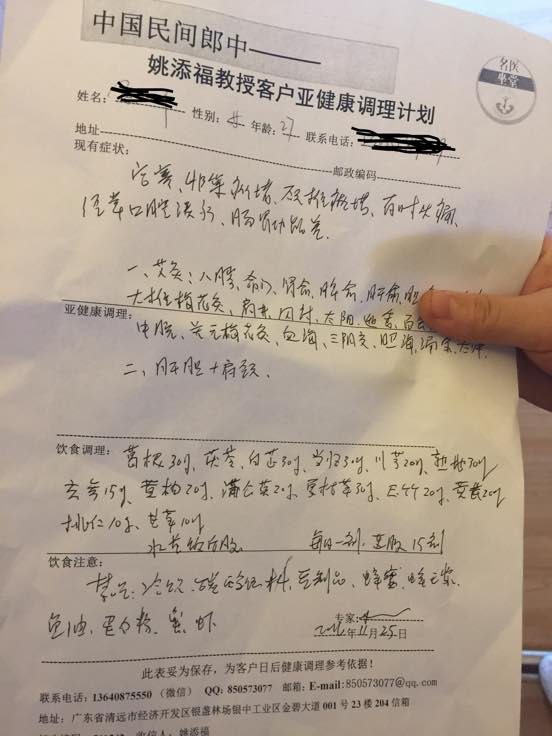 中国民间郎中——
姚添福教授客户亚健康调理计划
名医
坐堂
姓名： 性别：女 年龄：27 联系电话：
地址 邮政编码
现有症状：
宫寒、卵巢 堵、双 堵、有时头痛、
经常口腔溃疡、肠胃功能差.
一、艾灸：八髎、命门、肾俞、脾俞、肝俞、胆
大椎梅花灸、肩井、风府、太阳、 百
亚健康调理：
中脘、关元梅花灸、血海、三阴交、照海、 、太冲
二、肝胆+肩颈.
饮食调理：
葛根30g、茯苓、白芷30g、当归30g、川芎20g、熟地30g
玄参15g、黄柏20g、蒲公英20g、 30g、 20g、黄芪20g
桃仁10g、甘草10g
水煎 服 每日一剂. 服15剂
饮食注意：
禁忌：冷饮、碳酸饮料、豆制品、蜂蜜、蜂王浆、
鱼油、蛋白粉、 虾
专家：
年11月25日
此表妥为保存，为客户日后健康调理参考依据！
联系电话：13640875550（微信） QQ：850573077 邮箱：E-mail:850573077@qq.com
地址：广东省清远市经济开发区银盏林场银中工业区金碧大道001号23楼204信箱
姚添福